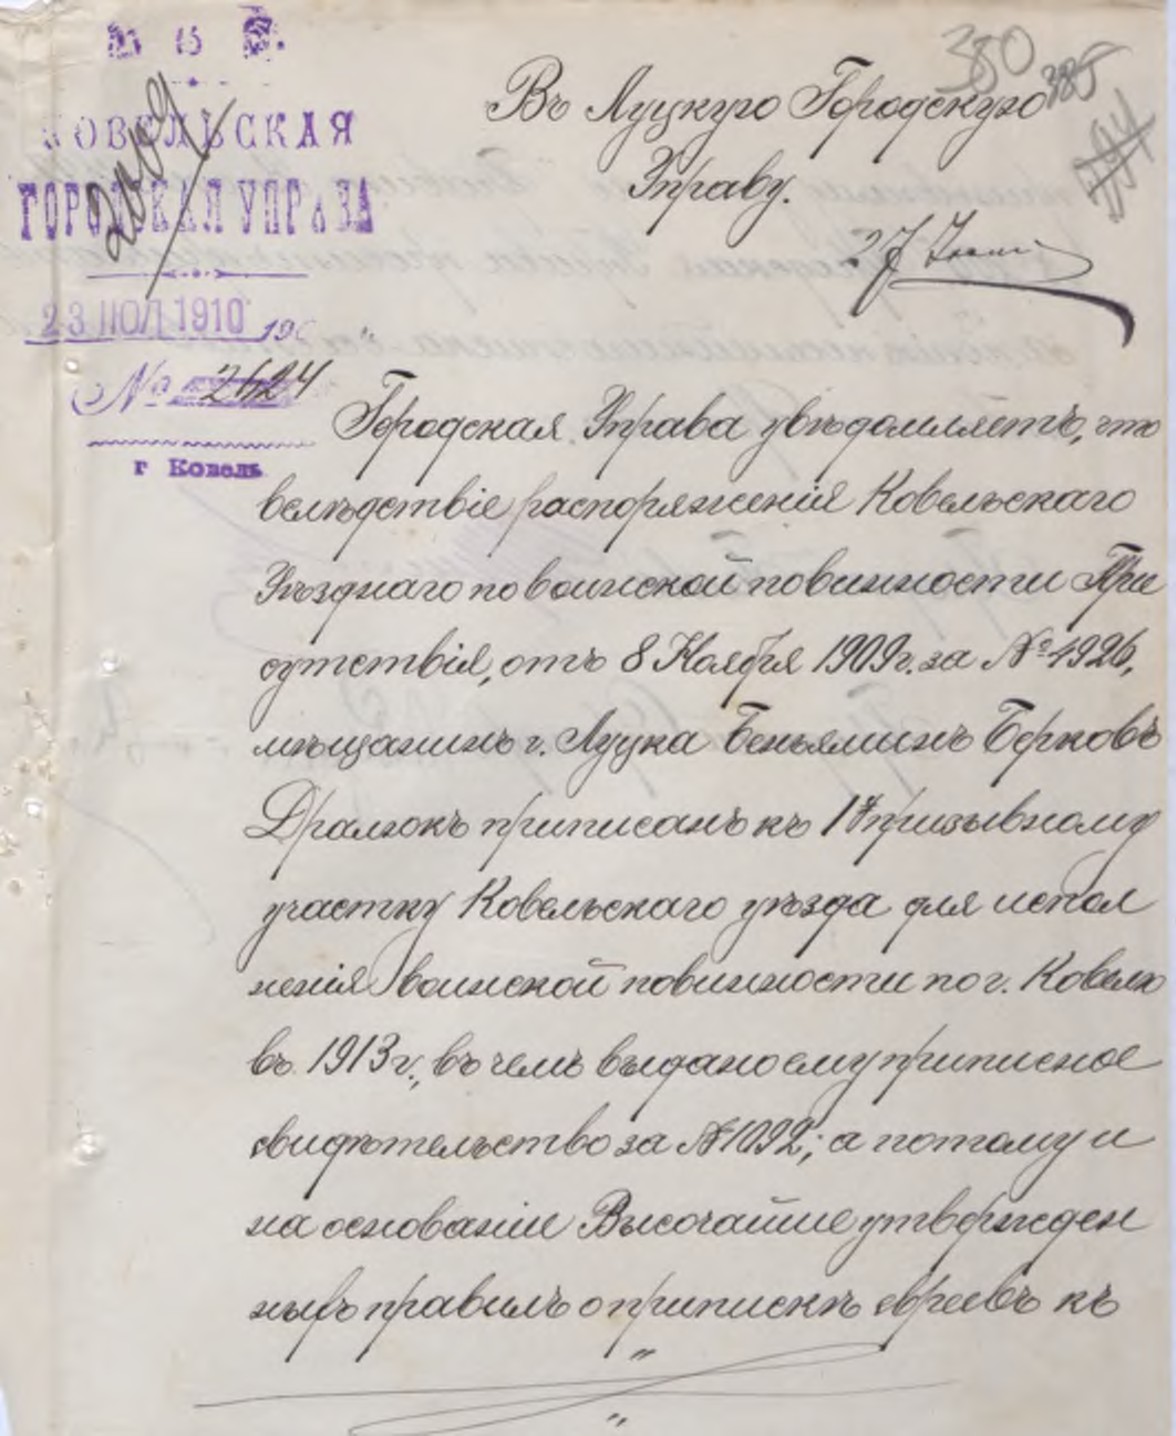 М. В. Д.
КОВЕЛЬСКАЯ
ГОРОДСКАЯ УПРАВА
23 ІЮЛ 1910
190
№ 2624
г Ковель
380
385
Въ Луцкую Городскую
Управу.
27
Городская Управа увѣдомляетъ, что
вслѣдствіе распоряженія Ковельскаго
Уѣзднаго по воинской повинности При
сутствія, отъ 8 Ноября 1909 г. за № 4926,
мѣщанинъ г. Луцка Беньяминъ Берковъ
Дралюкъ приписанъ къ 1 призывному
участку Ковельскаго уѣзда для испол
ненія воинской повинности по г. Ковелю
въ 1913 г., въ чемъ выдано ему приписное
свидѣтельство за № 1092; а потому и
на основаніи Высочайше утвержден
ныхъ правилъ о припискѣ евреевъ къ